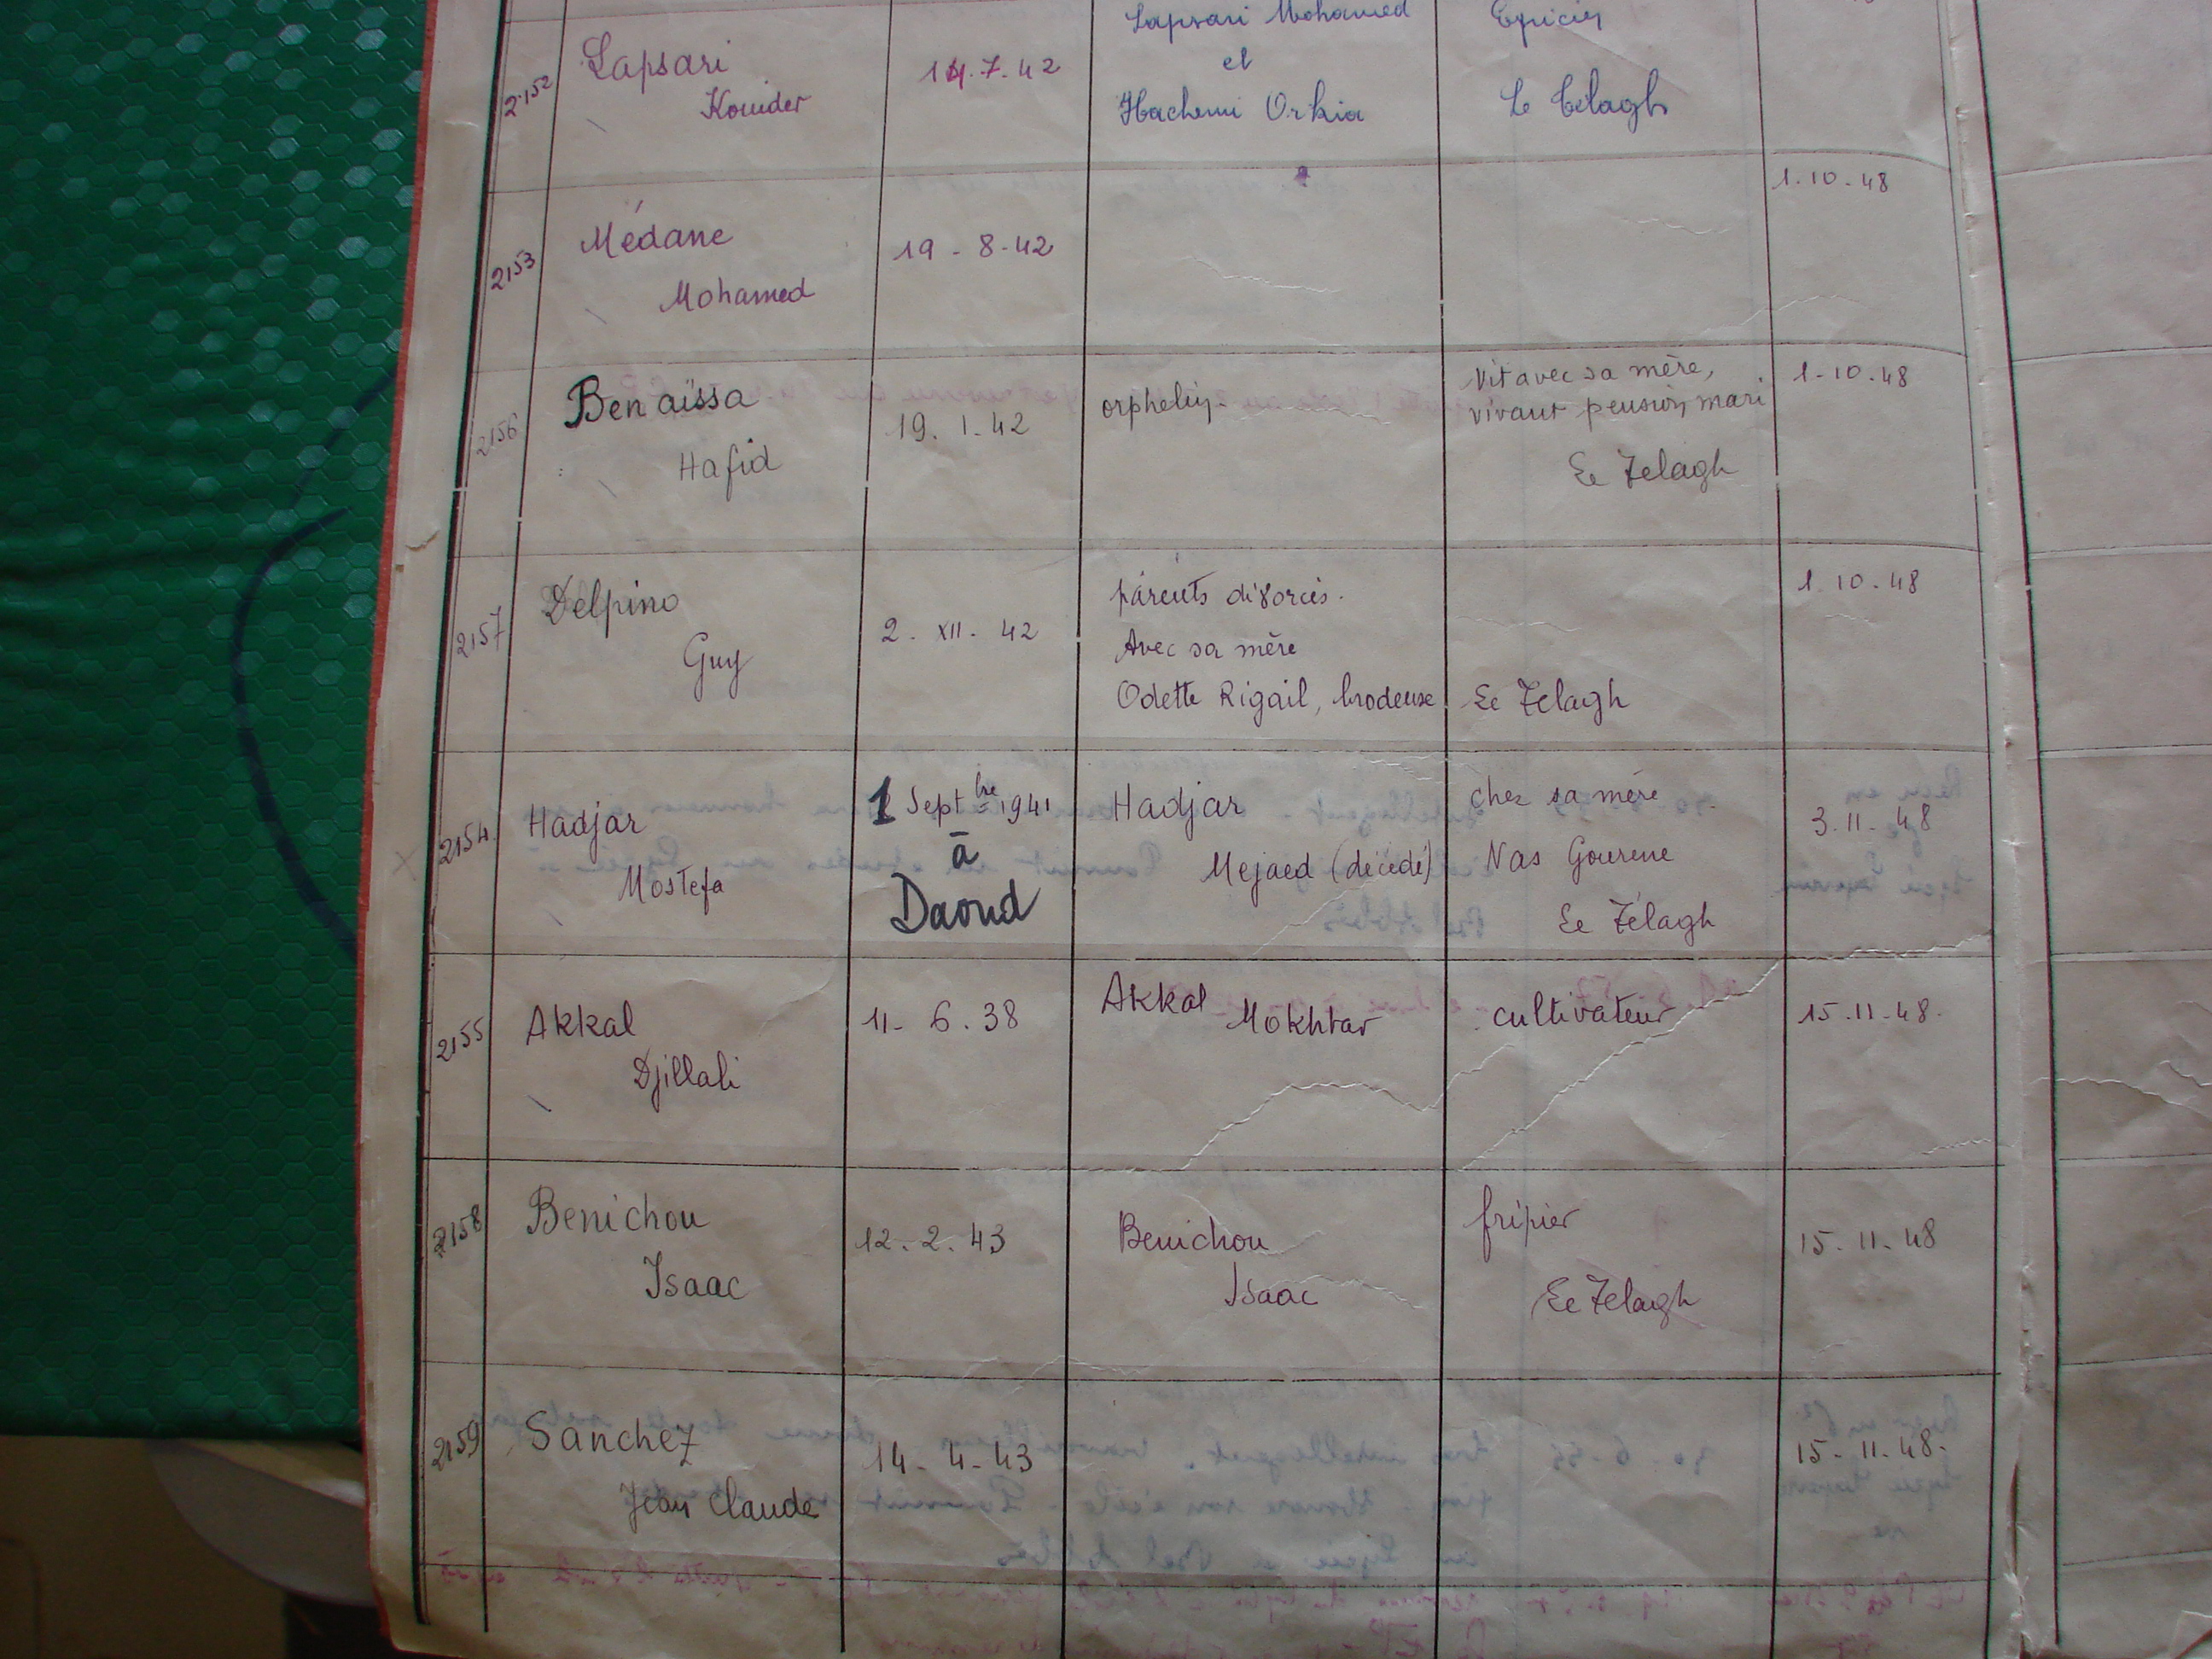 2152
Lapsari
Kouider
14.7.42
Lapsari Mohamed
et
Hachemi Orkia
Epicier
Le Télagh
2153
Médane
Mohamed
19-8-42
1.10-48
2156
Benaïssa
Hafid
19.1.42
orphelin.
Vit avec sa mère,
vivant pension mari
Le Telagh
1-10.48
2157
Delpino
Guy
2. XII. 42
parents divorcés.
Avec sa mère
Odette Rigail, brodeuse
Le Telagh
1.10-48
2154
Hadjar
Mostefa
1 Septbre 1941
à
Daoud
Hadjar
Mejaed (décédé)
chez sa mère
Nas Gourene
Le Télagh
3.11.48
2155
Akkal
Djillali
11-6.38
Akkal Mokhtar
cultivateur
15.11-48.
2158
Benichou
Isaac
12.2.43
Benichou
Isaac
fripier
Le Telagh
15.11.48
2159
Sanchez
Jean Claude
14-4-43
15-11-48.